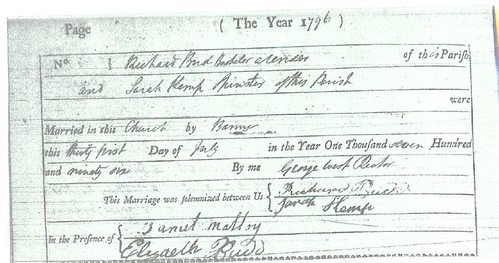 Page ( The Year 1796 )
No. { Richard Bud Bachelor of this Parish
and Sarah Kemp Spinster of this Parish
were
Married in this Church by Banns
this thirty first Day of July in the Year One Thousand seven Hundred
and ninety six By me George West Rector
This Marriage was solemnized between Us { Richard Bud
Sarah Kemp
In the Presence of {
Elizabeth Budd